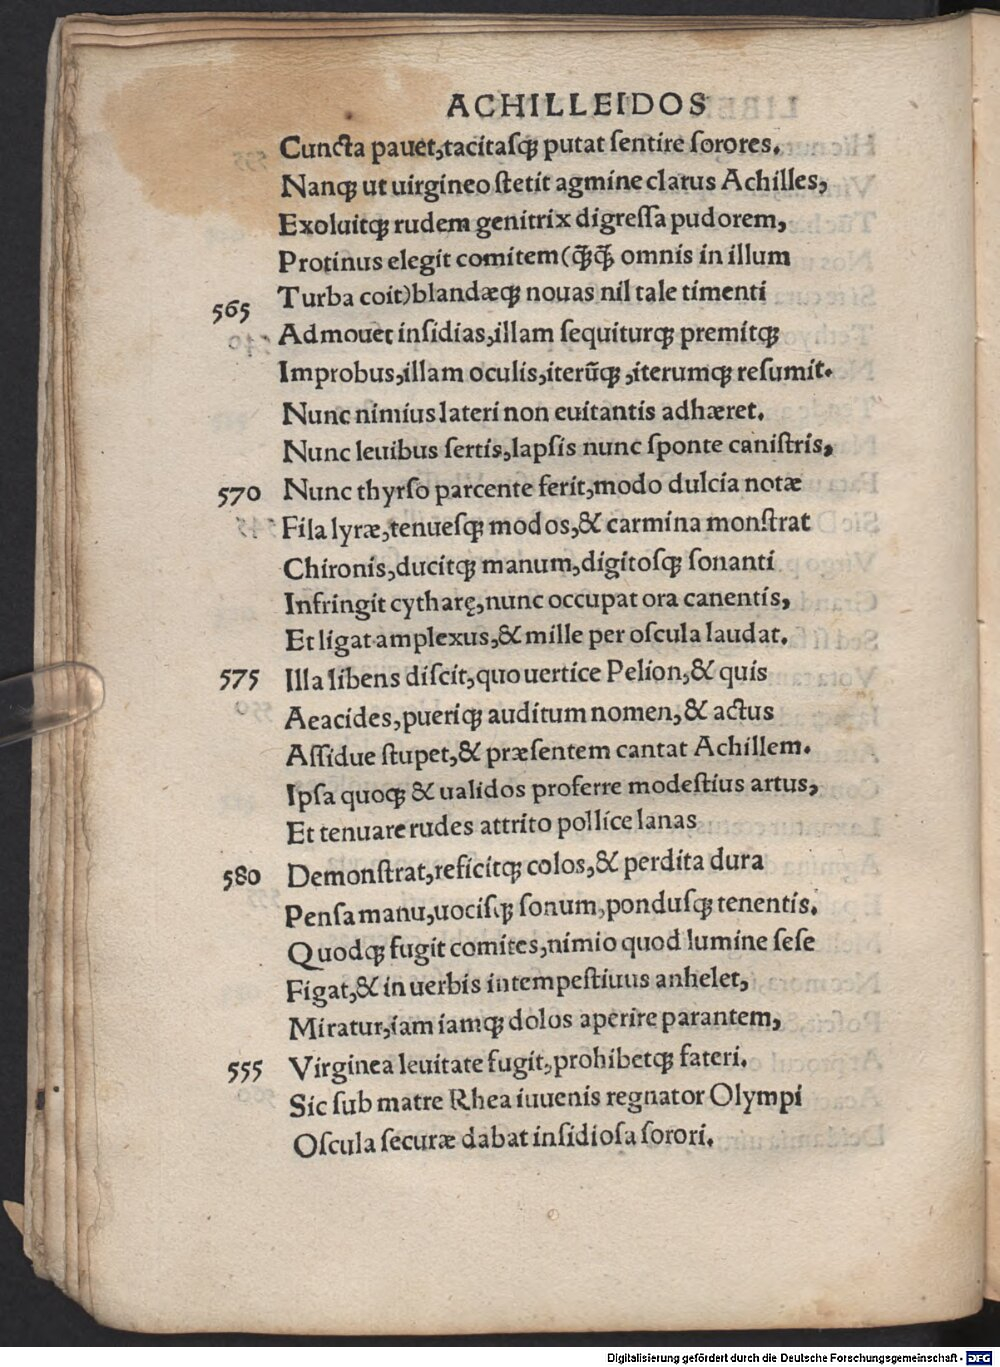 ACHILLEIDOS
Cuncta pauet,tacitaſqꝫ putat ſentire ſorores.
Nanqꝫ ut uirgineo ſtetit agmine clarus Achilles,
Exoluitqꝫ rudem genitrix digreſſa pudorem,
Protinus elegit comitem(qꝫ̃qꝫ̃ omnis in illum
565 Turba coit)blandæqꝫ nouas nil tale timenti
Admouet inſidias,illam ſequiturqꝫ premitqꝫ
Improbus,illam oculis,iterũqꝫ,iterumqꝫ reſumit.
Nunc nimius lateri non euitantis adhæret.
Nunc leuibus ſertis,lapſis nunc ſponte caniſtris,
570 Nunc thyrſo parcente ferit,modo dulcia notæ
Fila lyræ,tenueſqꝫ modos,& carmina monſtrat
Chironis,ducitqꝫ manum,digitoſqꝫ ſonanti
Infringit cytharę,nunc occupat ora canentis,
Et ligat amplexus,& mille per oſcula laudat.
575 Illa libens diſcit,quo uertice Pelion,& quis
Aeacides,pueriqꝫ auditum nomen,& actus
Aſſidue ſtupet,& præſentem cantat Achillem.
Ipſa quoqꝫ & ualidos proferre modeſtius artus,
Et tenuare rudes attrito pollice lanas
580 Demonſtrat,reficitqꝫ colos,& perdita dura
Penſa manu,uociſqꝫ ſonum,ponduſqꝫ tenentis.
Quodqꝫ fugit comites,nimio quod lumine ſeſe
Figat,& in uerbis intempeſtiuus anhelet,
Miratur,iam iamqꝫ dolos aperire parantem,
555 Virginea leuitate fugit,prohibetqꝫ fateri.
Sic ſub matre Rhea iuuenis regnator Olympi
Oſcula ſecuræ dabat inſidioſa ſorori.
Digitalisierung gefördert durch die Deutsche Forschungsgemeinschaft - DFG